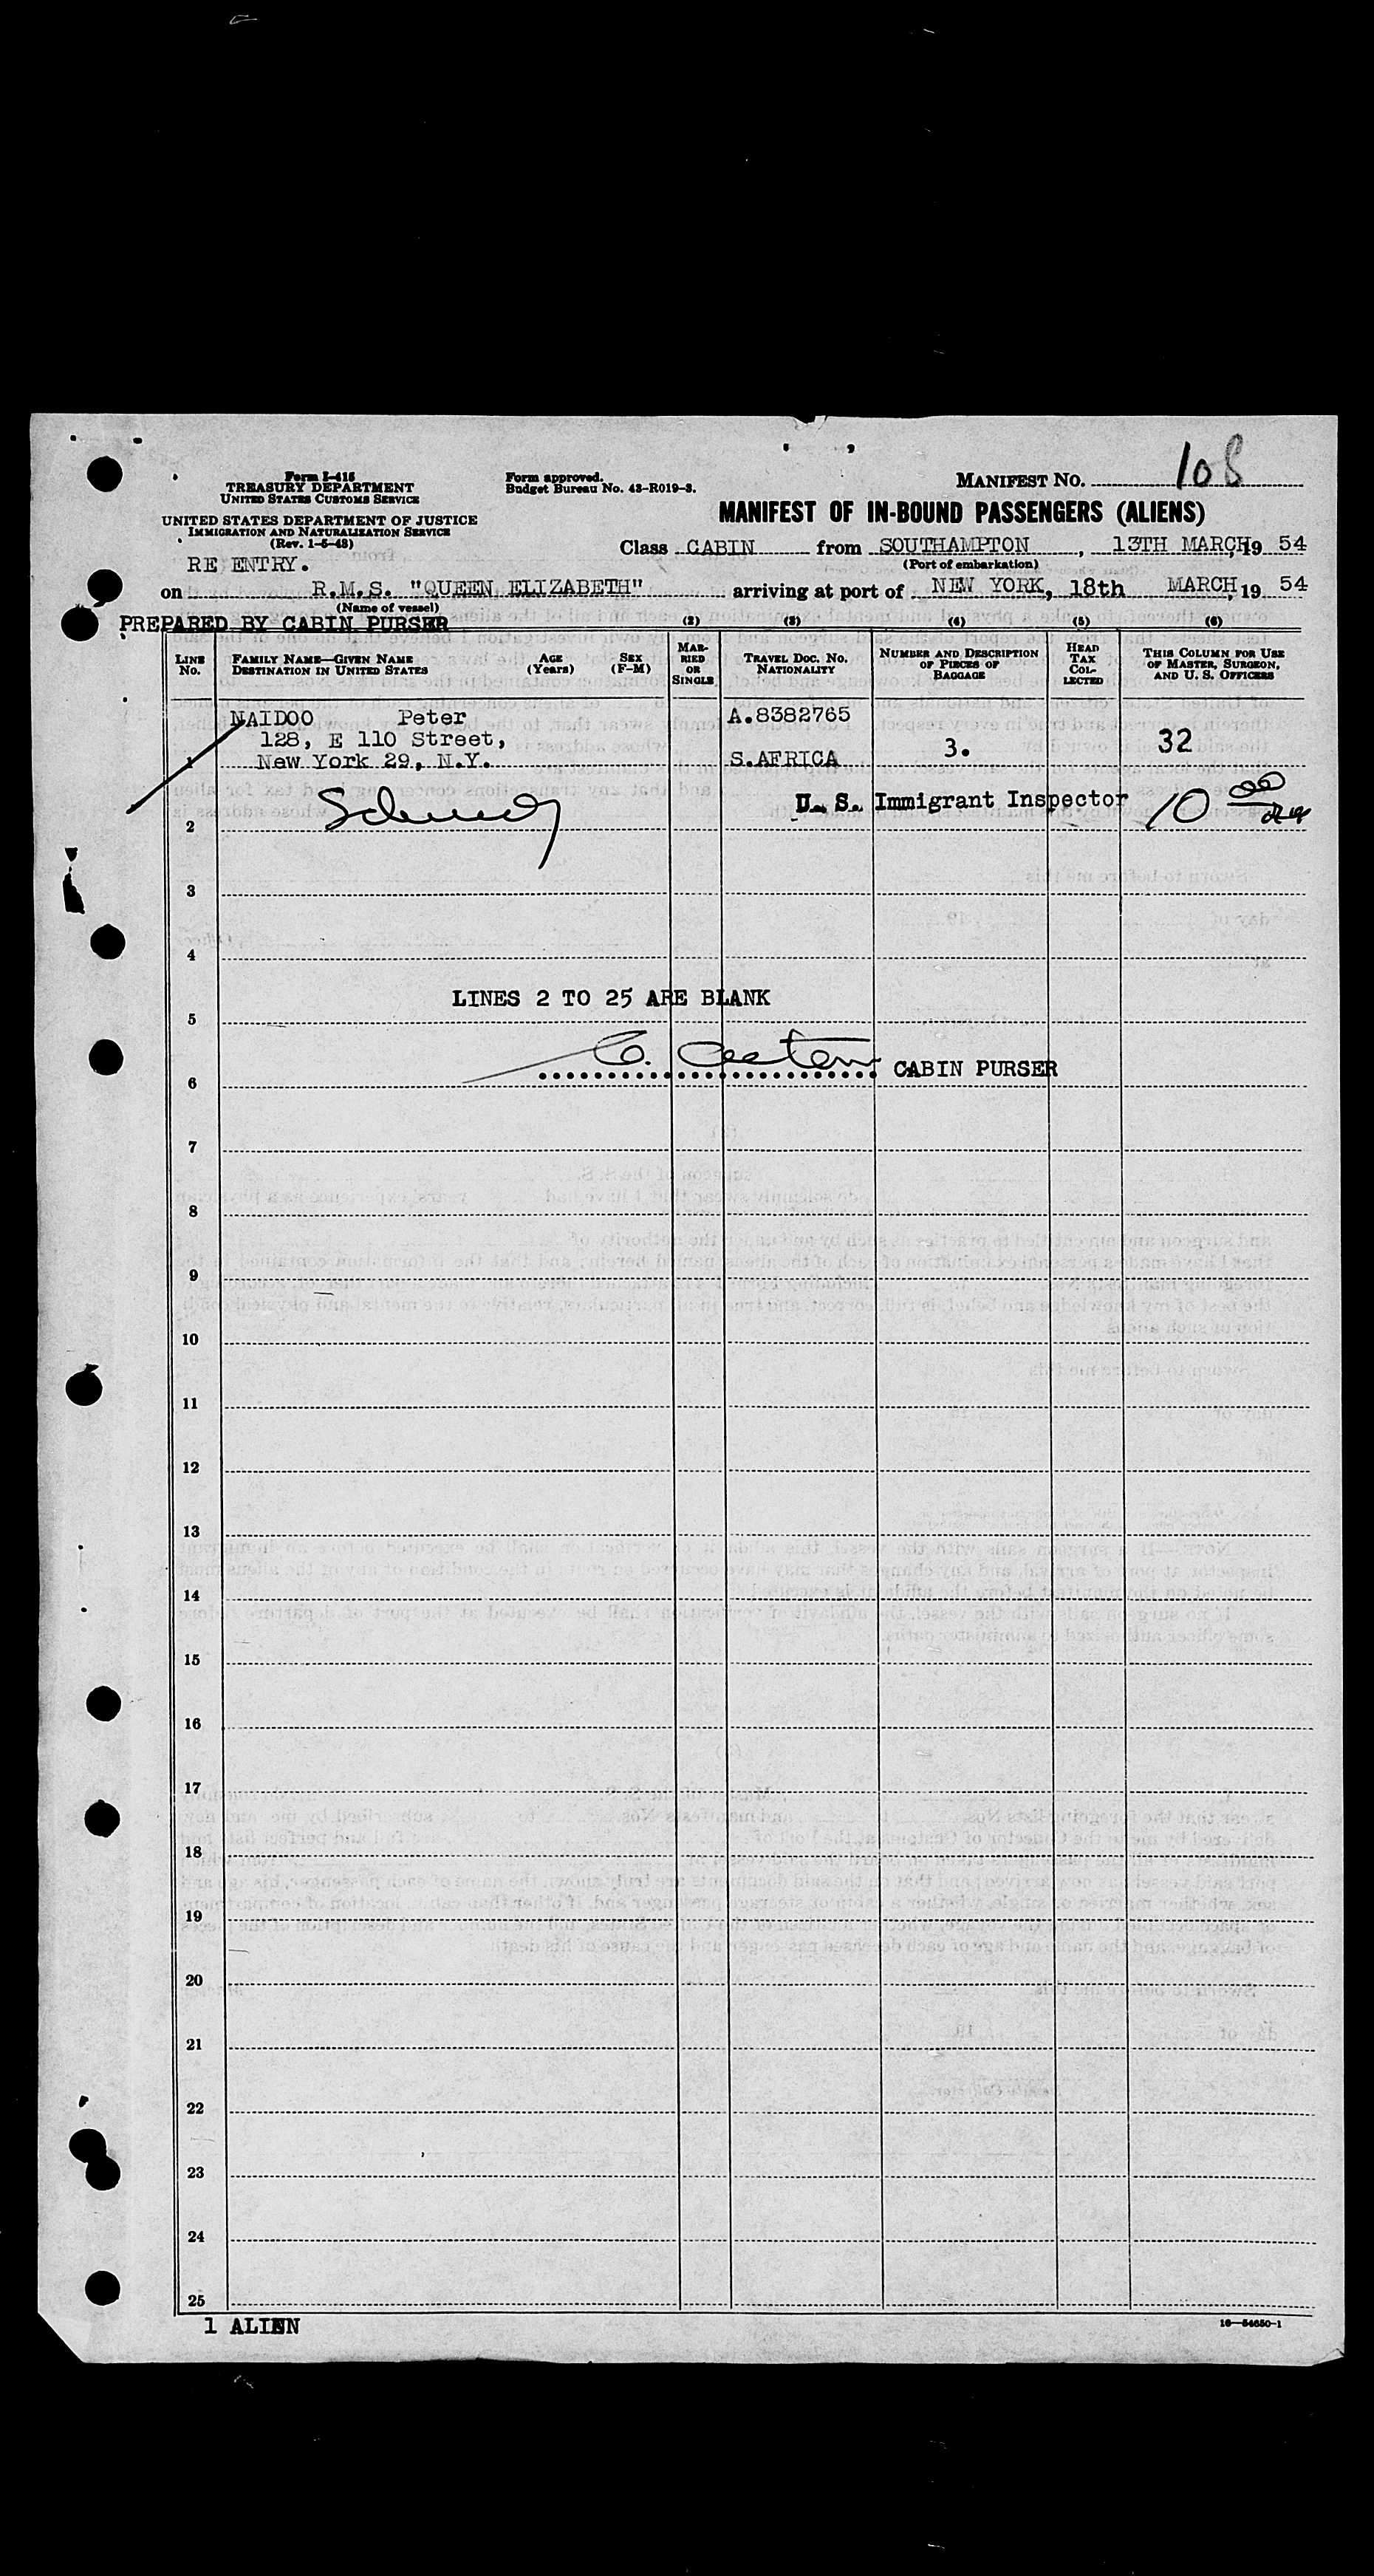 108
Form I-415
TREASURY DEPARTMENT
UNITED STATES CUSTOMS SERVICE
Form approved.
Budget Bureau No. 43-R019-3.
MANIFEST NO.
UNITED STATES DEPARTMENT OF JUSTICE
IMMIGRATION AND NATURALIZATION SERVICE
(Rev. 1-5-48)
MANIFEST OF IN-BOUND PASSENGERS (ALIENS)
RE ENTRY.
Class CABIN from SOUTHAMPTON, 13TH MARCH, 19 54
(Port of embarkation)
on R.M.S. "QUEEN ELIZABETH" arriving at port of NEW YORK, 18th MARCH, 19 54
(Name of vessel)
PREPARED BY CABIN PURSER
(2) (3) (4) (5) (6)
LINE No.
FAMILY NAME—GIVEN NAME
DESTINATION IN UNITED STATES
AGE (Years)
SEX (F-M)
MARRIED OR SINGLE
TRAVEL DOC. NO. NATIONALITY
NUMBER AND DESCRIPTION OF PIECES OF BAGGAGE
HEAD TAX COLLECTED
THIS COLUMN FOR USE OF MASTER, SURGEON, AND U. S. OFFICERS
NAIDOO Peter A.8382765
128, E 110 Street,
1 New York 29, N.Y. S.AFRICA 3. 32
U. S. Immigrant Inspector 10 00
2
3
4
LINES 2 TO 25 ARE BLANK
5
CABIN PURSER
6
7
8
9
10
11
12
13
14
15
16
17
18
19
20
21
22
23
24
25
1 ALIEN
16—54650-1